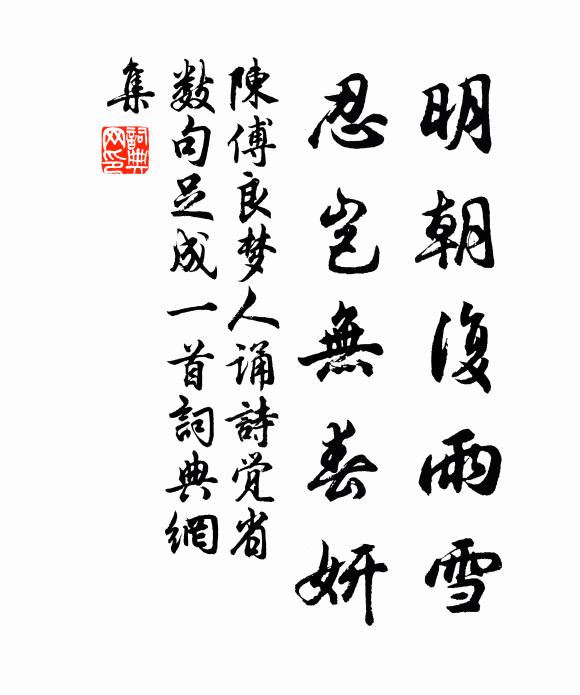 明朝復雨雪
忍岂無春妍
陳傅良梦人诵詩觉省
数句足成一首詞典網
集
詞典网印